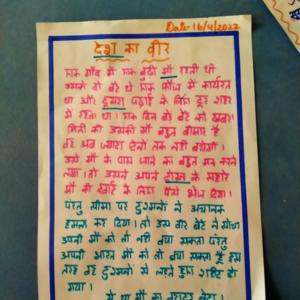 Date- 16/4/2022
देश का वीर
एक गाँव में एक बुढ़ी माँ रहती थी
उसके दो बेटे थे एक फौज में कार्यरत
था और दुसरा पढ़ाई के लिए दुर शहर
में रहता था। एक दिन दोनो बेटे को खबर
मिली की उसकी माँ बहुत बीमार है
वह अब ज्यादा दिनो तक नही बचेगी।
उसे माँ के पास जाने का बहुत मन करने
लगा। तो उसने अपने दोस्त के सहारे
माँ की दवाई के लिए पैसे भेज दिया।
परंतु सीमा पर दुश्मनो ने अचानक
हमला कर दिया। तो उस वीर बेटे ने सोचा
अपनी माँ को तो नही बचा सकता परंतु
अपनी भारत माँ को तो बचा सकता हूँ इस
तरह वह दुश्मनो से लड़ते हुए शहीद हो
गया।
ये था माँ का बेटा।